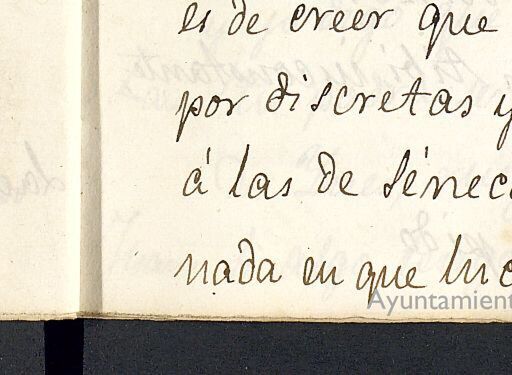 es de creer que
por discretas y
á las de Sénec
nada en que luc
Ayuntamient